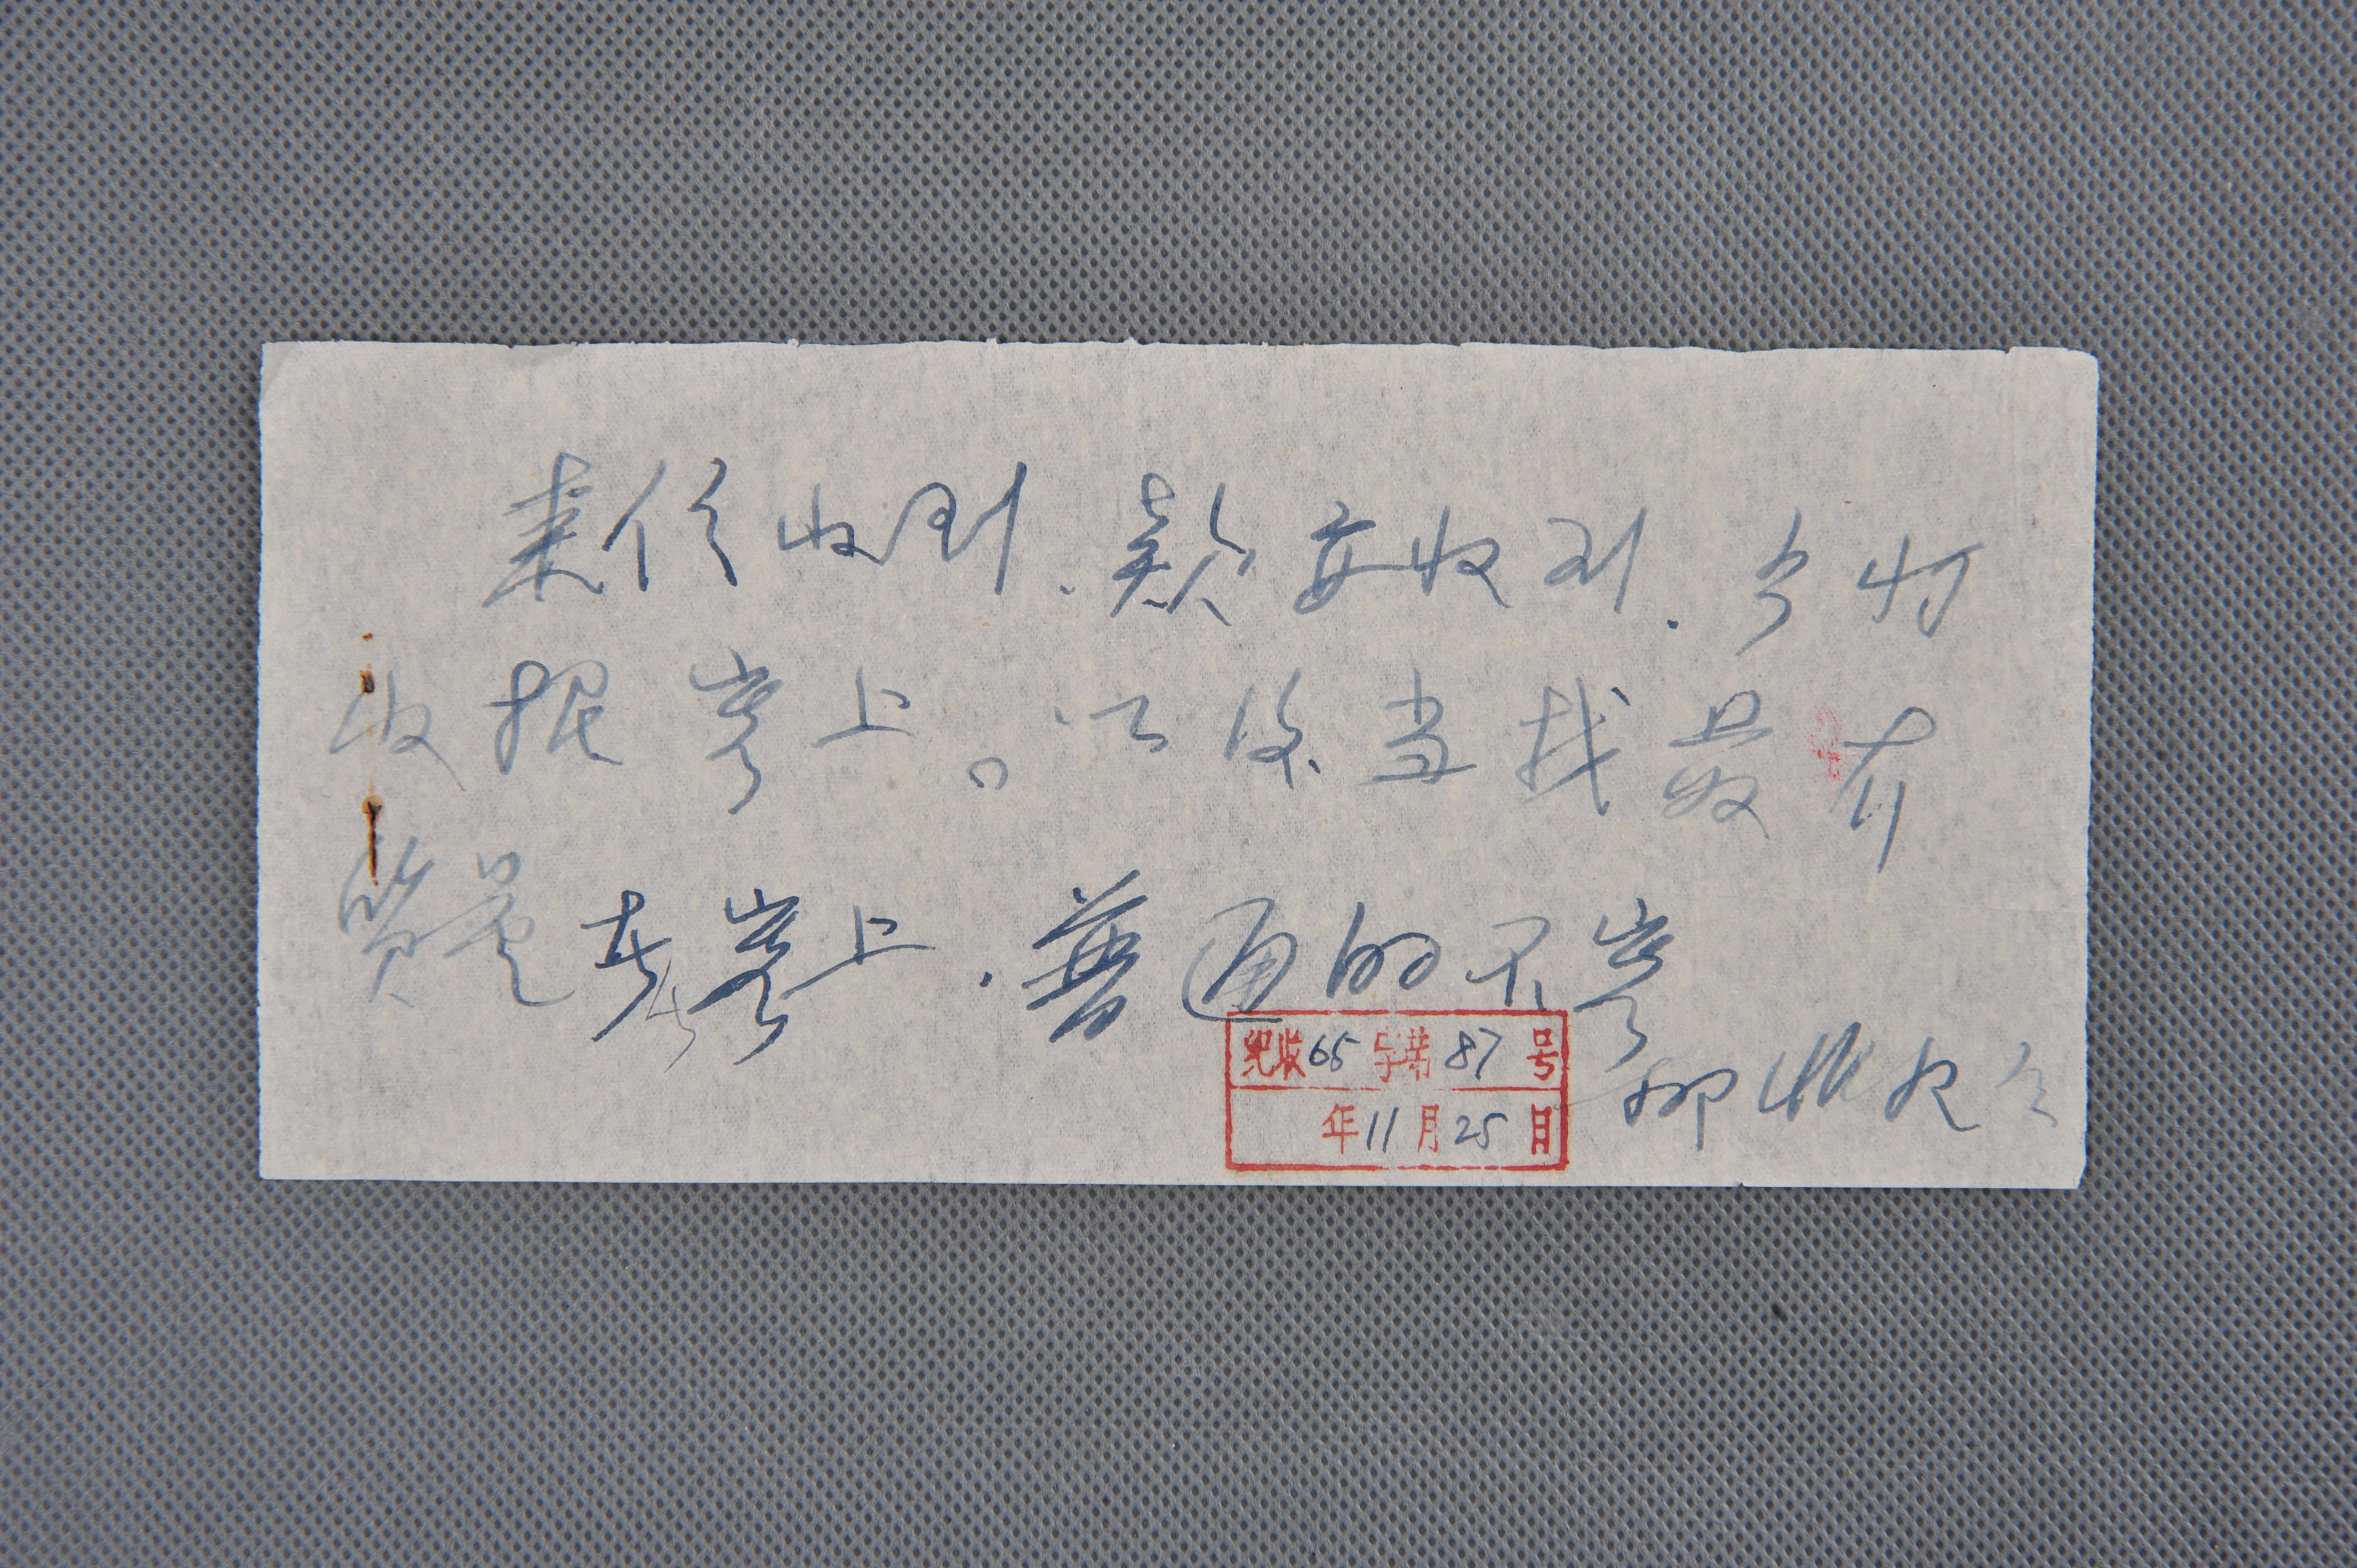 来信收到、款亦收到.今将
收据寄上。以後当找最有
质量者寄上.普通的不寄
纪收65字第87号
年11月25日
柳